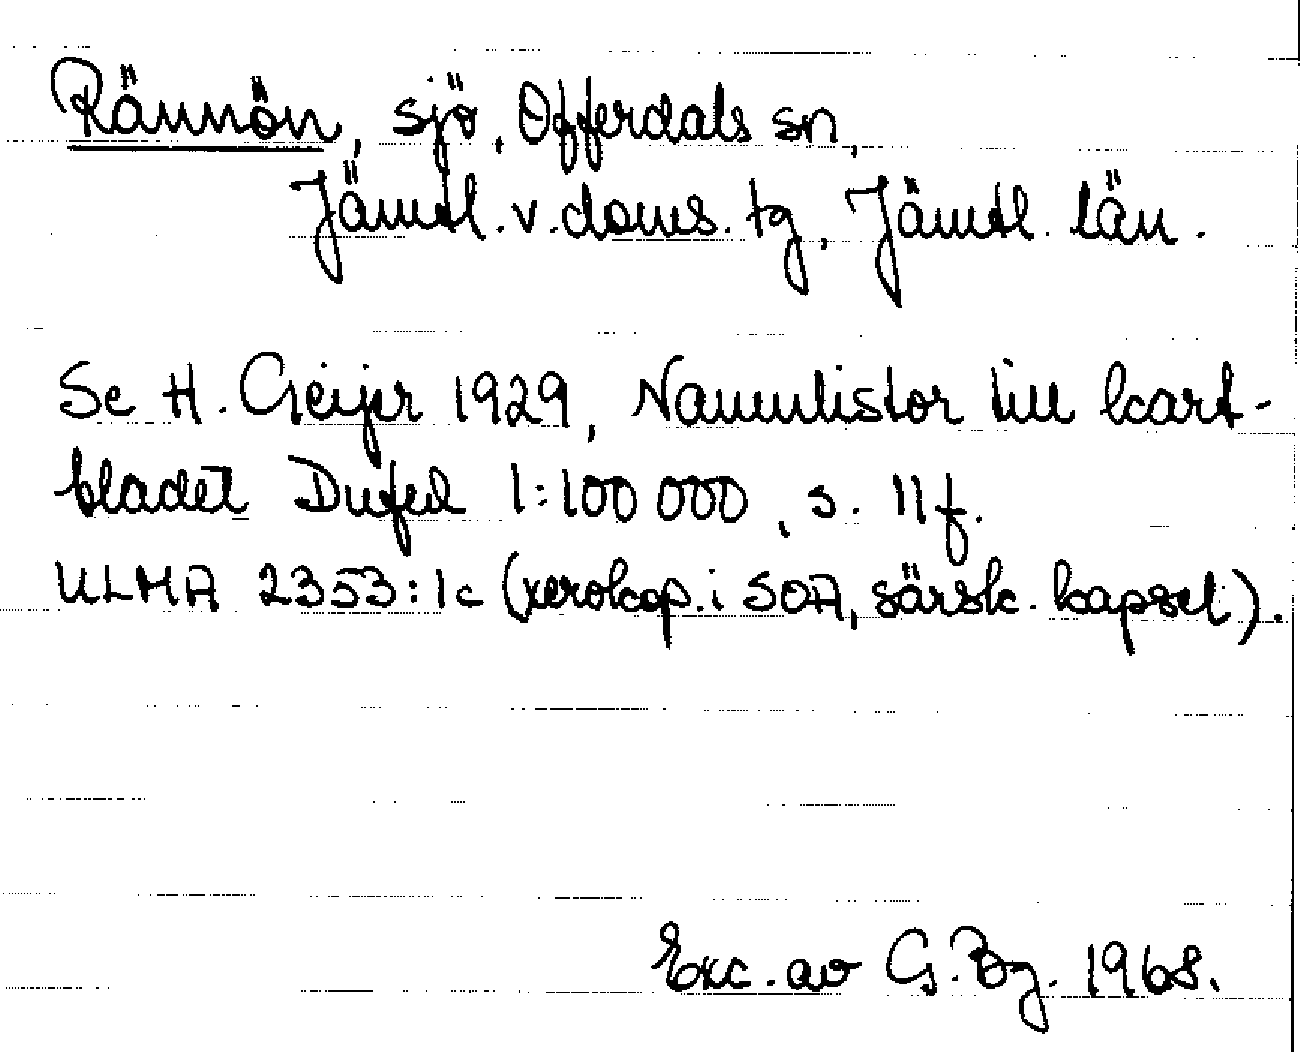 Rännön, sjö, Offerdals sn,
Jämtl. v. doms. tg, Jämtl. län.
Se H. Geijer 1929, Namnlistor till kart-
bladet Dufed 1:100 000, s. 11 f.
ULMA 2353:1c (xerokop. i SOA, särsk. kapsel).
Exc. av G. Bg. 1968.